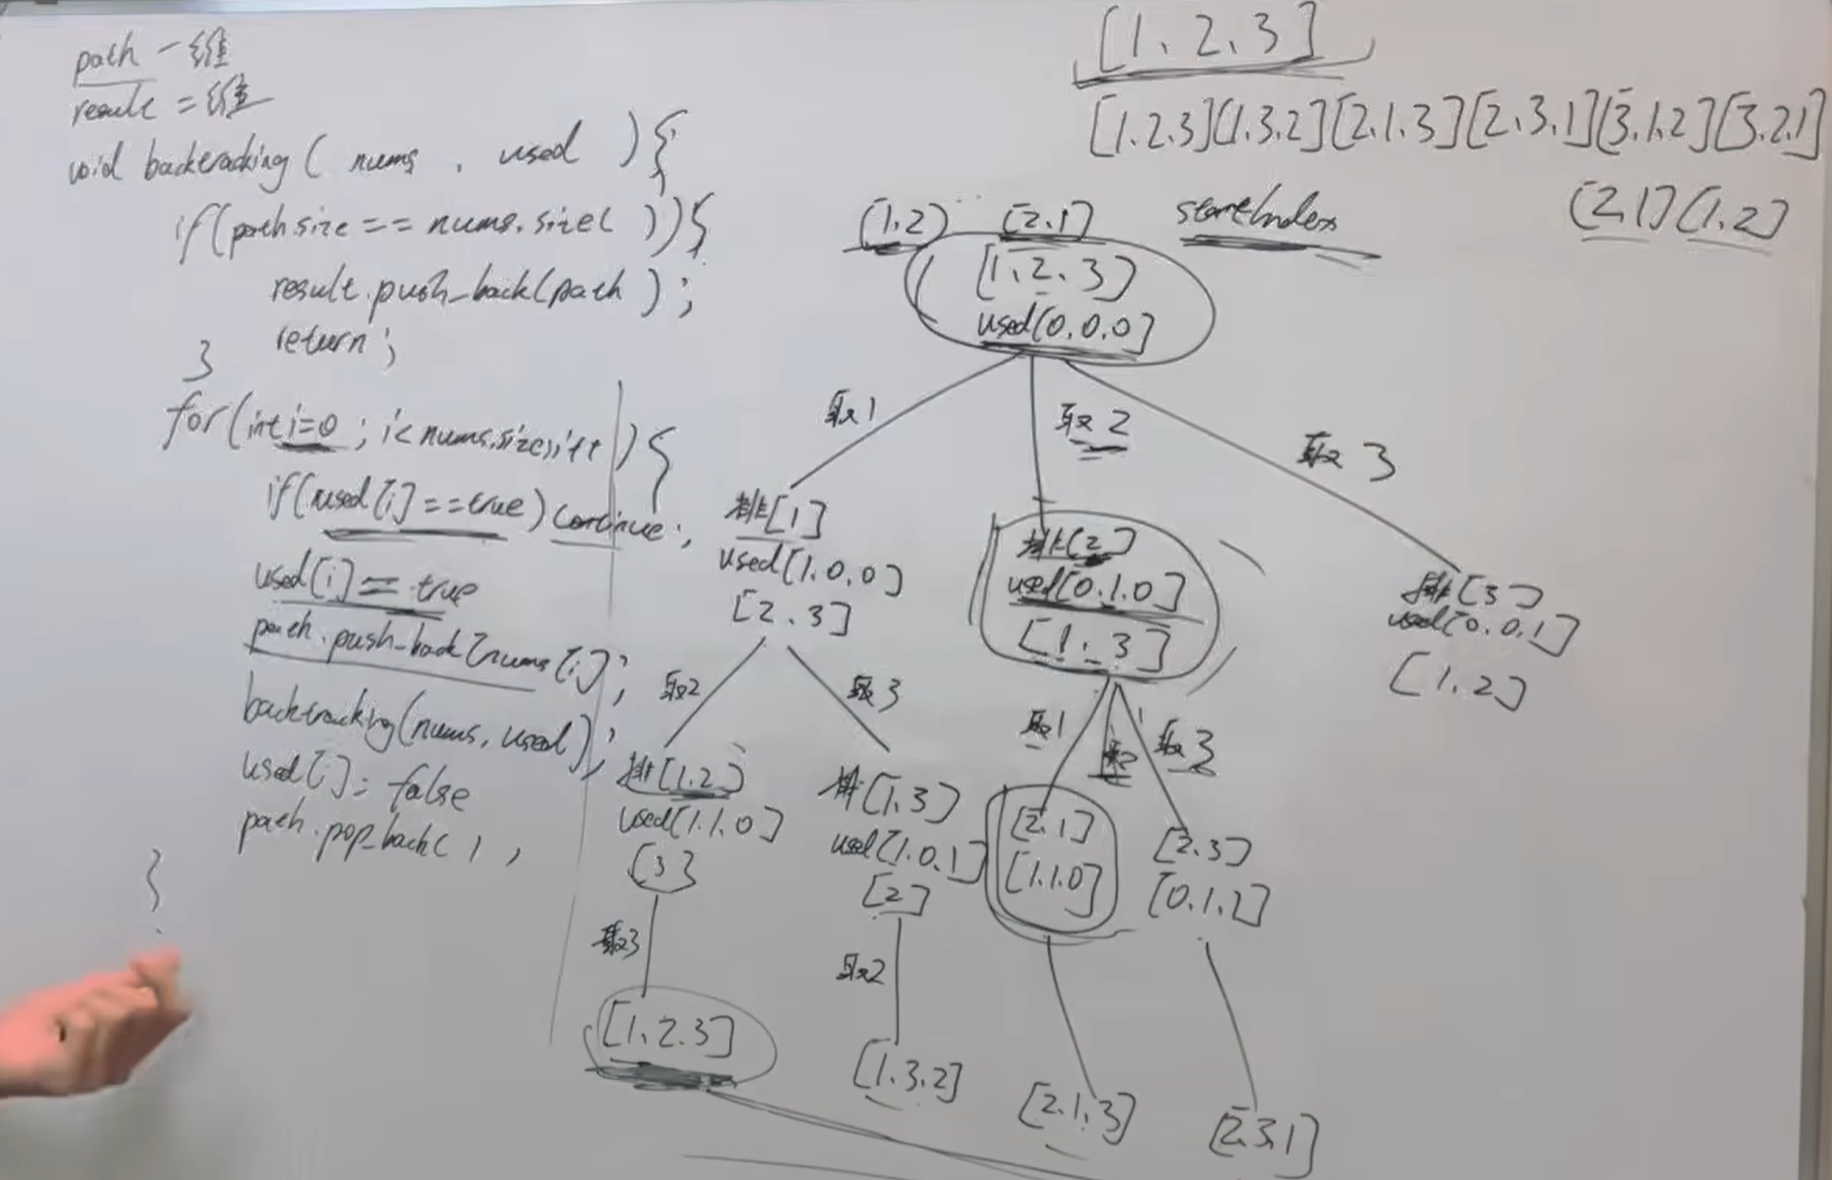 path 一维
result 二维
void backtracking( nums , used ){
if(path.size == nums.size( )){
result.push_back(path );
return;
}
for(int i=0 ; i<nums.size();i++ ){
if(used[i]==true)continue;
used[i]=true
path.push_back[nums[i]);
backtracking(nums,used);
used[i]=false
path.pop_back( ),
}
[1、2、3]
[1.2.3][1.3.2][2.1.3][2、3.1][3.1.2][3.2.1]
(1.2) [2.1] startIndex [2.1][1.2]
[1、2、3]
used[0.0.0]
取1 取2 取3
排[1]
used[1.0.0]
[2.3]
排[2]
used[0.1.0]
[1、3]
排[3]
used[0.0.1]
[1.2]
取2 取3 取1 取2 取3
排[1.2]
used[1.1.0]
[3]
排[1.3]
used[1.0.1]
[2]
[2.1]
[1.1.0]
[2.3]
[0.1.1]
取3 取2
[1.2.3] [1.3.2] [2.1.3] [2.3.1]